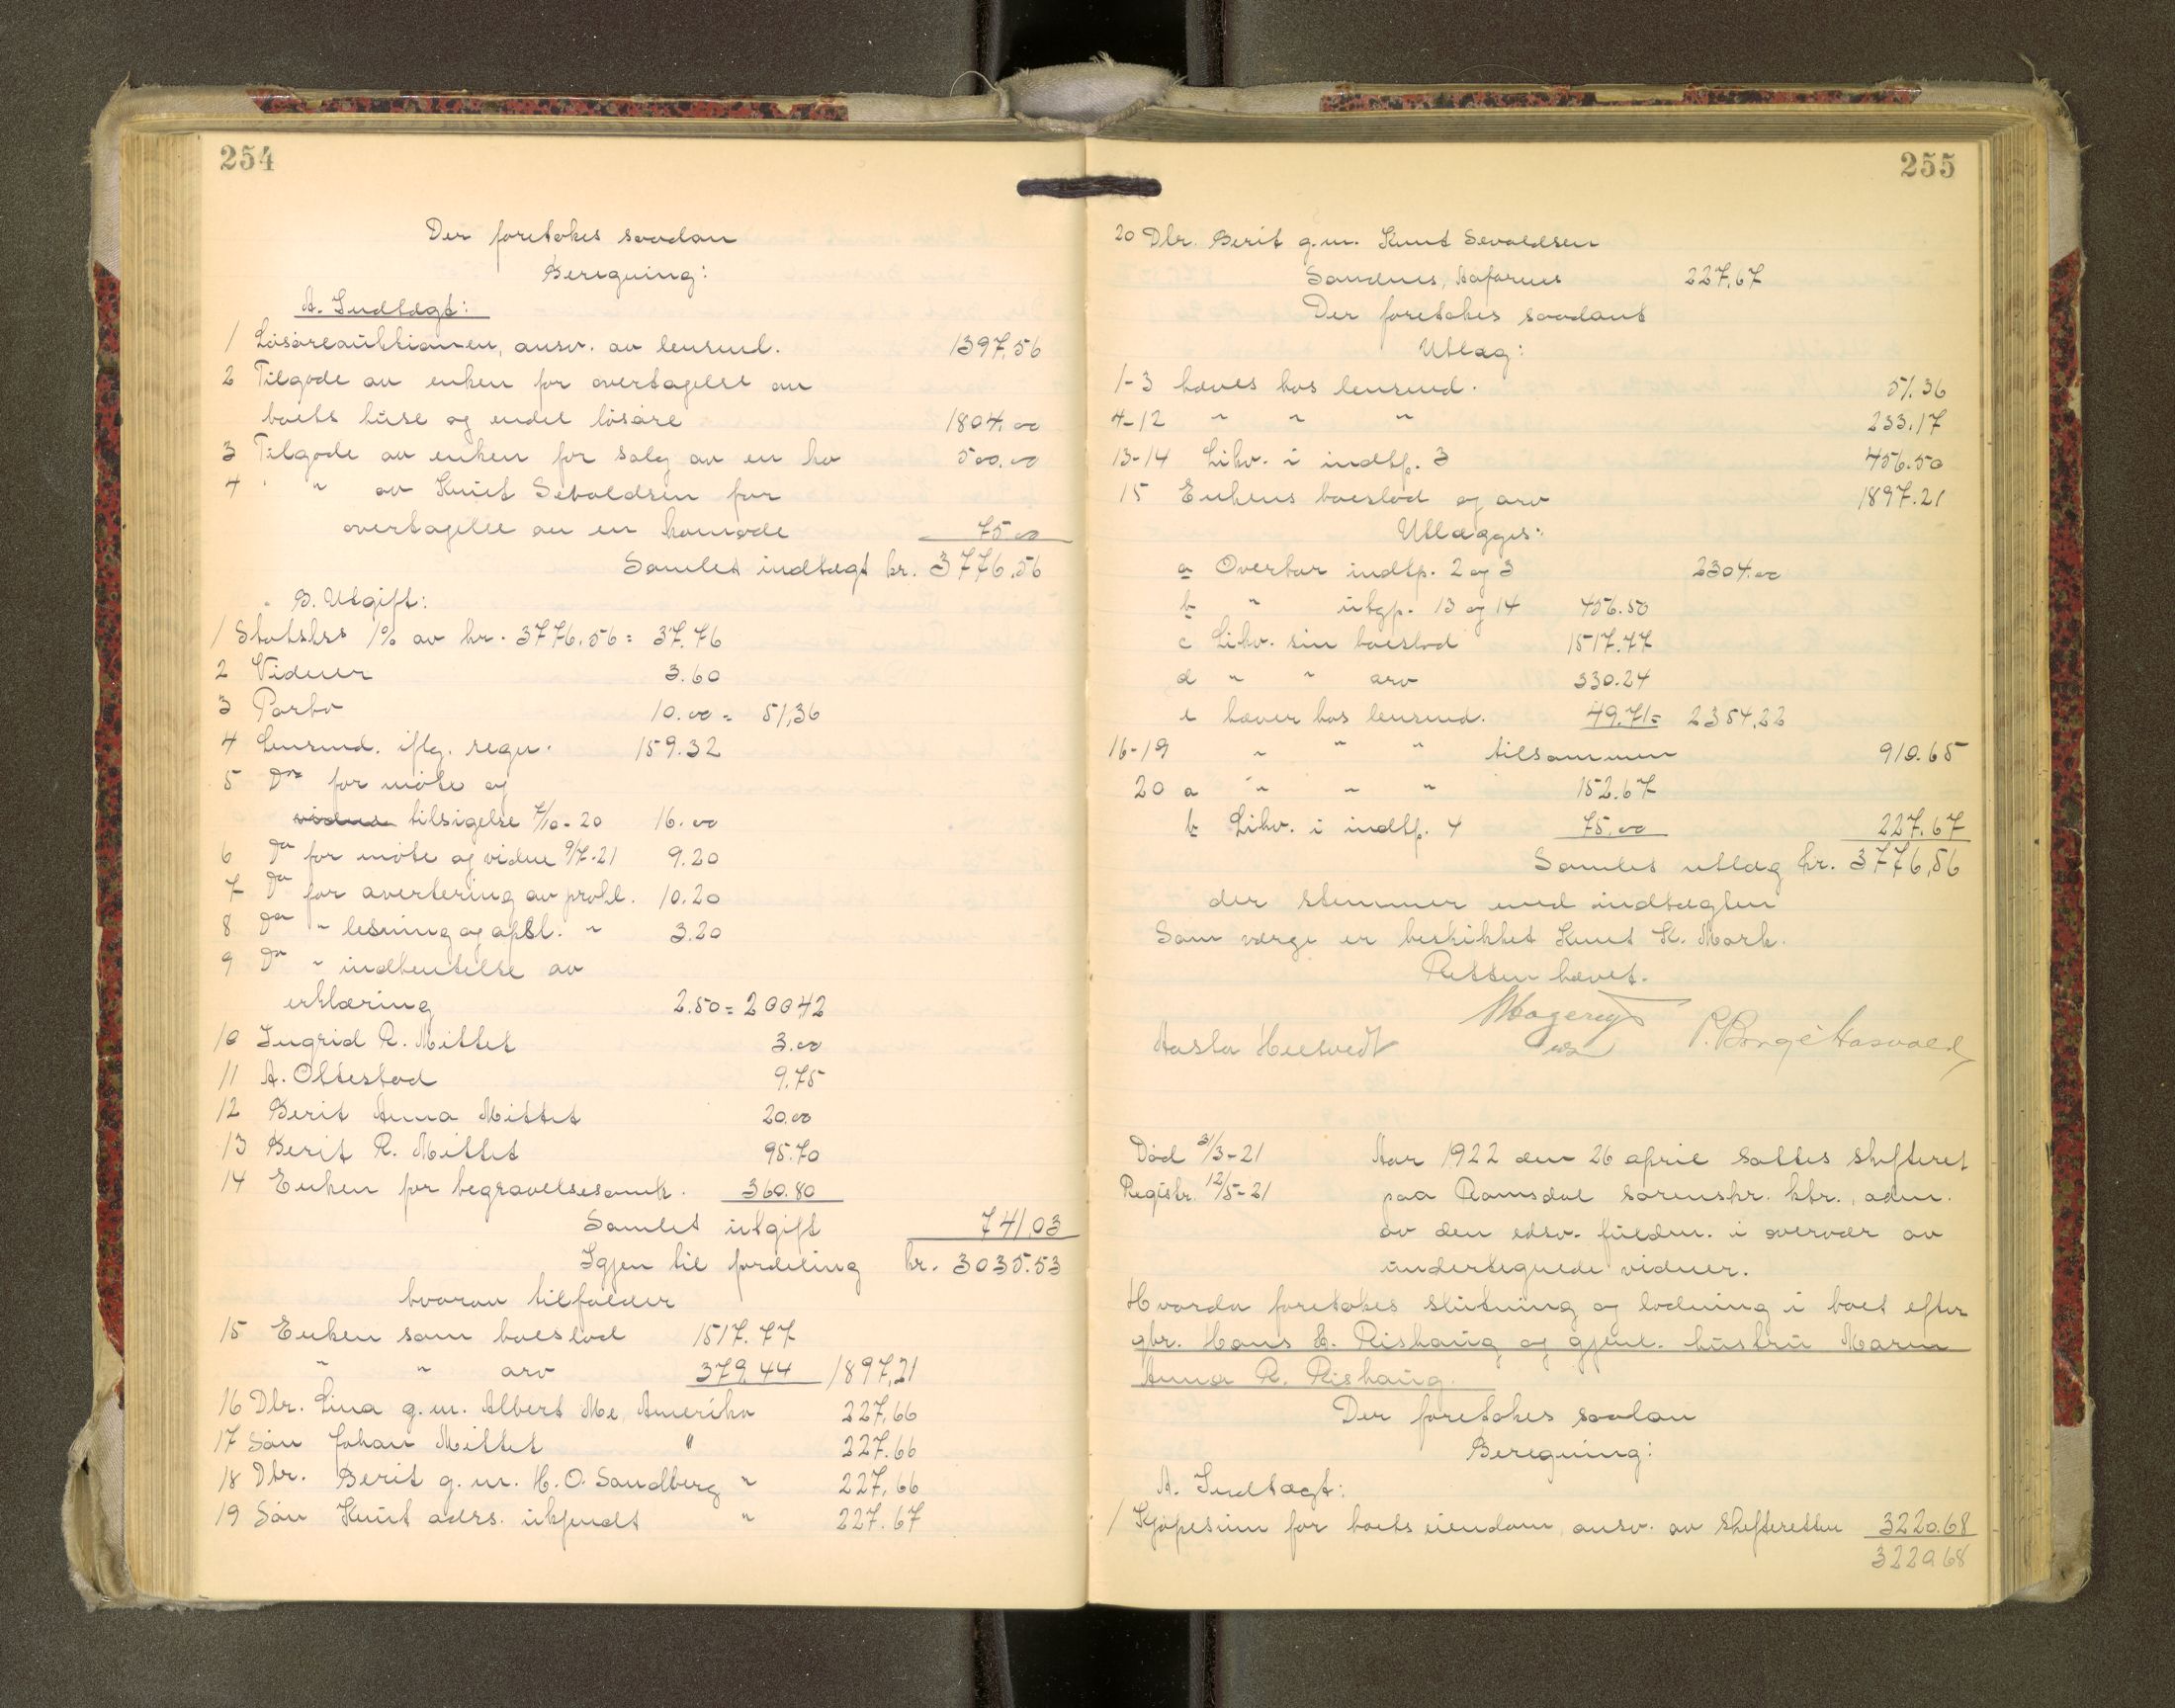 254
Der foretokes saadan
Beregning:
A. Indtægt:
1 Løsøreauktionen, ansv. av lensmd. 1397,56
2 Tilgode av enken for overtagelse av
boets huse og endel løsøre 1804,00
3 Tilgode av enken for salg av en ko 500,00
4 " " av Knut Sevaldsen for
overtagelse av en komode 75 00
Samlet indtægt kr. 3776,56
B. Utgift:
1 Statskas 1% av kr. 3776,56 = 37.76
2 Vidner 3.60
3 Porto 10.00 = 51,36
4 Lensmd. iflg. regn. 159.32
5 Do for møte og
vidne tilsigelse 7/10-20 16.00
6 Do for møte og vidne 9/7-21 9.20
7 Do for avertering av prokl. 10.20
8 Do " lesning og opsl. " 3.20
9 Do " indhentelse av
erklæring 2.50 = 200 42
10 Ingrid R. Mittet 3.00
11 A. Oltestad 9.75
12 Berit Anna Mittet 20.00
13 Berit R. Mittet 95.70
14 Enken for begravelsesomk. 360.80
Samlet utgift 741,03
Igjen til fordeling kr. 3035.53
hvorav tilfalder
15 Enken som boeslod 1517.77
" " arv 379,44 1897,21
16 Dtr. Lina g.m. Albert Me, Amerika 227,66
17 Søn Johan Mittet " 227.66
18 Dtr. Berit g.m. H.O. Sandberg " 227,66
19 Søn Knut adrs. ukjendt " 227.67
255
20 Dtr. Berit g.m. Knut Sevaldsen
Sandnes, 227,67
Der foretokes saadant
Utlæg:
1-3 hæves hos lensmd. 51.36
4-12 " " " 233.17
13-14 Likv. i indtp. 3 456.50
15 Enkens boeslod og arv 1897.21
Utlægges:
a Overtar indtp. 2 og 3 2304.00
b " utgp. 13 og 14 456.50
c Likv. sin boeslod 1517.77
d " " arv 330.24
e hæver hos lensmd. 49,71 = 2354,22
16-19 " " " tilsammen 910.65
20 a " " " 152.67
b Likv. i indtp. 4 75.00 227,67
Samlet utlæg kr. 3776,56
der stemmer med indtægten
Som værge er beskikket Knut K. Mork.
Retten hævet.
Død 31/3-21
Registr. 12/5-21
Aar 1922 den 26 april sattes skifteret
paa Romsdal sorenskr. ktr., adm.
av den edsv. fuldm. i overvær av
undertegnede vidner.
Hvorda foretokes slutning og lodning i boet efter
gbr. Hans E. Rishaug og gjenl. hustru Maren
Anna R. Rishaug.
Der foretokes saadan
Beregning:
A. Indtægt:
1 Kjøpesum for boets eiendom, ansv. av skifteretten 3220.68
3220.68